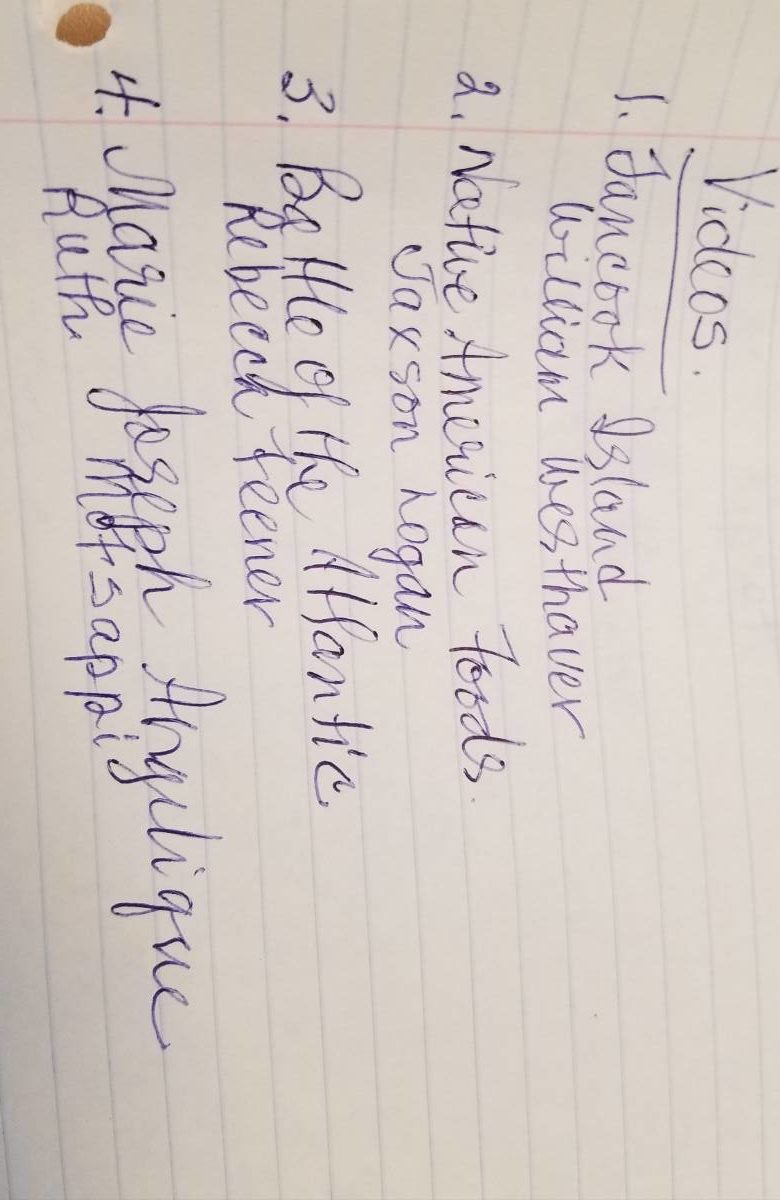 Videos.
1. Tancook Island
William Westhaver
2. Native American Foods.
Jaxson Logan
3. Battle of the Atlantic
Rebecca Feener
4. Marie Joseph Angelique
Ruth